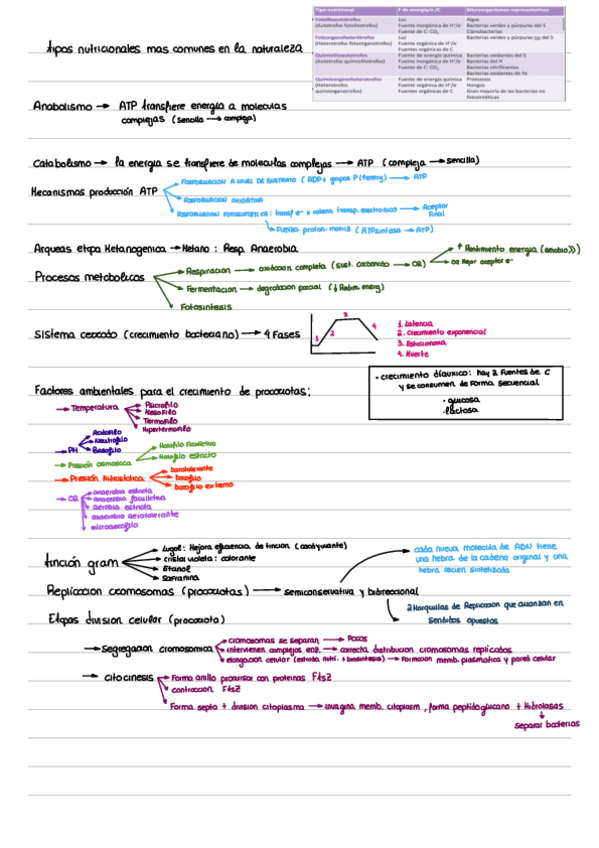 Tipo nutricional F de energía/e-/C Microorganismos representativos
Fotolitoautotrofos Luz Algas
(Autotrofos fotolitotrofos) Fuente inorgánica de H+/e- Bacterias verdes y púrpuras del S
Fuente de C: CO2 Cianobacterias
Fotoorganoheterótrofos Luz Bacterias verdes y púrpuras no del S
(Heterotrofos fotoorganotrofos) Fuente orgánica de H+/e-
Fuentes orgánicas de C
Quimiolitoautotrofos Fuente de energía química Bacterias oxidantes del S
(Autotrofos quimiolitotrofos) Fuente inorgánica de H+/e- Bacterias del H
Fuente de C: CO2 Bacterias nitrificantes
Bacterias oxidantes de Fe
Quimioorganoheterotrofos Fuente de energía química Protozoos
(Heterotrofos Fuente orgánica de H+/e- Hongos
quimiorganotrofos) Fuentes orgánicas de C Gran mayoría de las bacterias no
fotosintéticas
tipos nutricionales mas comunes en la naturaleza
Anabolismo → ATP transfiere energia a moleculas
complejas (sencilla → compleja)
Catabolismo → la energia se transfiere de moleculas complejas → ATP (compleja → sencilla)
Mecanismos producción ATP
FOSFORILACION A NIVEL DE SUSTRATO (ADP + grupos P → ATP
FOSFORILACION OXIDATIVA
FOSFORILACION : transf e- x cadena transp. electronico → Aceptor
Final
Fuerza proton-motriz (ATPsintasa → ATP)
Arqueas etapa Metanogenica → Metano : Resp. Anaerobia
Procesos metabolicos
Respiracion → oxidacion completa (sust. carbonato → O2)
↑ Rendimiento energia (aerobio)
O2 mejor aceptor e-
Fermentacion → degradacion parcial (↓ Rendim. energ)
Fotosintesis
Sistema cerrado (crecimiento bacteriano) → 4 Fases
1 2 3 4
1. Latencia
2. Crecimiento exponencial
3. Estacionaria
4. Muerte
• crecimiento diauxico: hay 2 fuentes de C
y se consumen de forma secuencial
• glucosa
• lactosa
Factores ambientales para el crecimiento de procariotas:
→ Temperatura
Psicrofilo
Mesofilo
Termofilo
Hipertermofilo
→ PH
Acidofilo
Neutrofilo
Basofilo
→ Presión osmotica
Halofilo facultativo
Halofilo estricto
→ Presión hidrostatica
barotolerante
barofilo
barofilo extremo
→ O2
anaerobia estricta
anaerobia facultativa
aerobia estricta
anaerobio aerotolerante
microaerofilo
tinción gram
Lugol: Mejora eficiencia de tincion (coadyuvante)
cristal violeta: colorante
Etanol
Safranina
cada nueva molecula de ADN tiene
una hebra de la cadena original y una
hebra recien sintetizada
Replicacion cromosomas (procariotas) → semiconservativa y bidireccional
2 Horquillas de Replicacion que avanzan en
sentidos opuestos
Etapas division celular (procariota)
→ Segregacion cromosomica
cromosomas se separan → Polos
intervienen complejos enz. → correcta distribucion cromosomas replicados
elongacion celular (entrada nutri. + biosintesis) → Formacion memb. plasmatica y pared celular
→ citocinesis
Forma anillo precursor con proteinas FtsZ
contraccion FtsZ
Forma septo + division citoplasma → invagina memb. citoplasm, forma peptidoglucano + Hidrolasas
separar bacterias